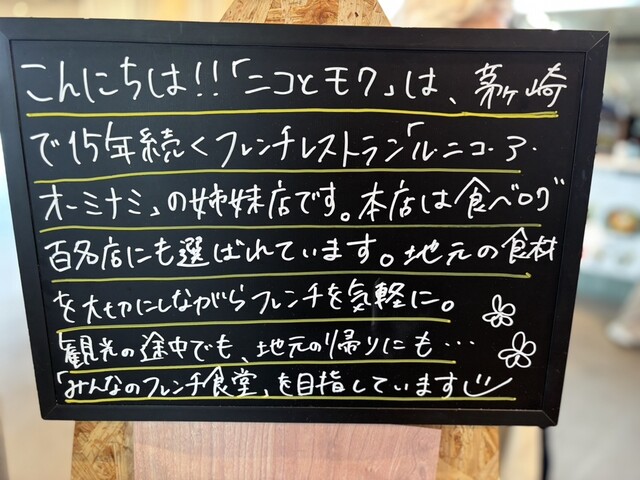 こんにちは!!「ニコとモク」は、茅ヶ崎
で15年続くフレンチレストラン「ル・ニコ・ア・
オーミナミ」の姉妹店です。本店は食べログ
百名店にも選ばれています。地元の食材
を大切にしながらフレンチを気軽に。
観光の途中でも、地元の帰りにも…
「みんなのフレンチ食堂」を目指しています